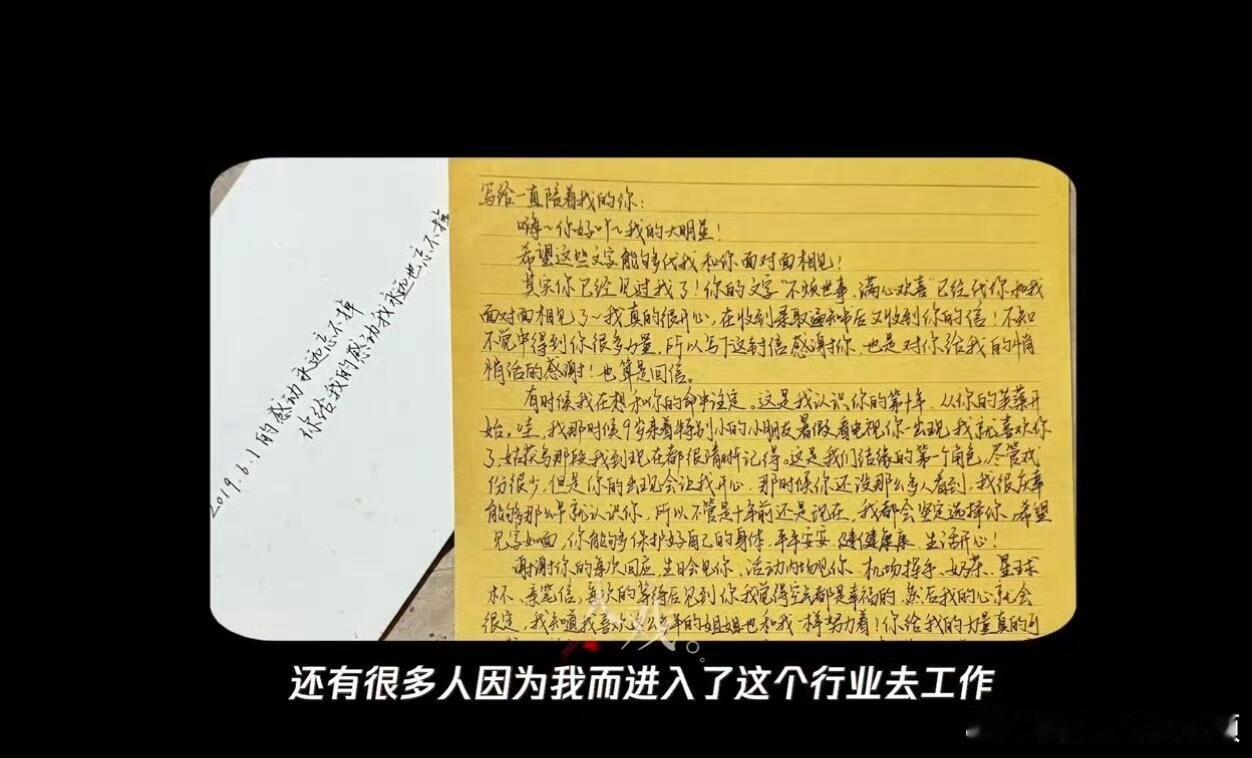 2019.6.1的感动永远忘不掉
你给我的感动我永远也忘不掉
写给一直陪着我的你：
嗨~你好吖~我的大明星！
希望这些文字能够代我和你面对面相见！
其实你已经见过我了！你的文字“不烦世事，满心欢喜”已经代你和我
面对面相见了~我真的很开心，在收到录取通知书后又收到你的信！不知
不觉中得到你很多力量，所以写下这封信感谢你，也是对你给我的悄
悄话的感谢！也算是回信。
有时候我在想和你的命中注定。这是我认识你的第十年，从你的芙蕖开
始，哇，我那时候9岁来着特别小的小朋友暑假看电视你一出现我就喜欢你
了，姑获鸟那段我到现在都很清晰记得。这是我们结缘的第一个角色，尽管戏
份很少，但是你的出现会让我开心，那时候你还没那么多人看到，我很庆幸
能够那么早就认识你，所以不管是十年前还是现在，我都会坚定选择你，希望
见字如面，你能够保护好自己的身体，平平安安，健健康康，生活开心！
谢谢你的每次回应，生日会见你、活动内场见你、机场挥手、奶茶、星球
杯、亲笔信，每次的等待后见到你我觉得空气都是幸福的，然后我的心就会
很定，我知道我喜欢这么多年的姐姐也和我一样努力着！你给我的力量真的可
还有很多人因为我而进入了这个行业去工作